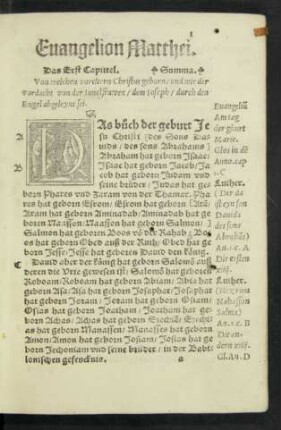 Euangelion Matthei.
Das Erst Capittel. Summa.
Von welchen voreltern Christus geborn / und wie der
verdacht von der Junckfrawen / dem Joseph / durch den
Engel abgeleynt sei.
A
DAs bůch der geburt Je
su Christi / des Sons Da
uids / des sons Abrahams
B
Abraham hat geborn Isaac /
Isaac hat geborn Jacob / Ja
cob hat geborn Judam und
seine brüder / Judas hat ge
born Phares und Zaram von der Thamar. Pha
res hat geborn Esrom / Esrom hat geborn Aram /
Aram hat geborn Aminadab / Aminadab hat ge
born Naasson / Naasson hat geborn Salmon /
Salmon hat geborn Boos von der Rahab / Bo
os hat geborn Obed auß der Ruth / Obed hat ge
born Jesse / Jesse hat geborn Dauid den künig.
C
Dauid aber der künig hat geborn Salomō auß
deren die Vrie gewesen ist / Salomō hat geborn
Roboam / Roboam hat geborn Abiam / Abia hat
geborn Asa / Asa hat geborn Josaphat / Josaphat
hat geborn Joram / Joram hat geborn Osiam /
Osias hat geborn Joatham / Joatham hat ge
born Achas / Achas hat geborn Ezechiā / Ezechias
hat geborn Manassen / Manasses hat geborn
Amon / Amon hat geborn Josiam / Josias hat ge
born Jechoniam und seine brüder / in der Babi
lonischen gefencknis.
a
Euangeliū
Am tag
der geburt
Marie.
Luther.
Der sons
Dauids
des sons
Abrahā
An. v. A
Die ersten
xiiij.
Luther.
Nahasson
Salma
An. v. B
Die an-
dern xiiij.
Gl. An. D